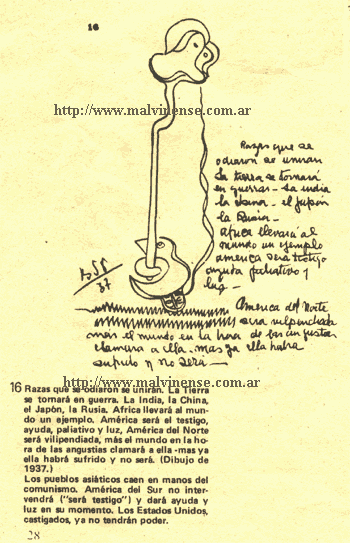 16
http://www.malvinense.com.ar
Razas que se
odiaron se uniran
La tierra se tornará
en guerras - La india
la china - el japón
la Rusia -
africa llevará al
mundo un ejemplo
america será testigo
ayuda paliativo y
luz -
37
America del Norte
sera vilipendiada
mas el mundo en la hora de las angustias
clamara a ella - mas ya ella habra
sufrido y no será -
http://www.malvinense.com.ar
16 Razas que se odiaron se unirán. La Tierra
se tornará en guerra. La India, la China,
el Japón, la Rusia. Africa llevará al mun-
do un ejemplo. América será el testigo,
ayuda, paliativo y luz, América del Norte
será vilipendiada, más el mundo en la ho-
ra de las angustias clamará a ella -mas ya
ella habrá sufrido y no será. (Dibujo de
1937.)
Los pueblos asiáticos caen en manos del
comunismo. América del Sur no inter-
vendrá ("será testigo") y dará ayuda y
luz en su momento. Los Estados Unidos,
castigados, ya no tendrán poder.
28